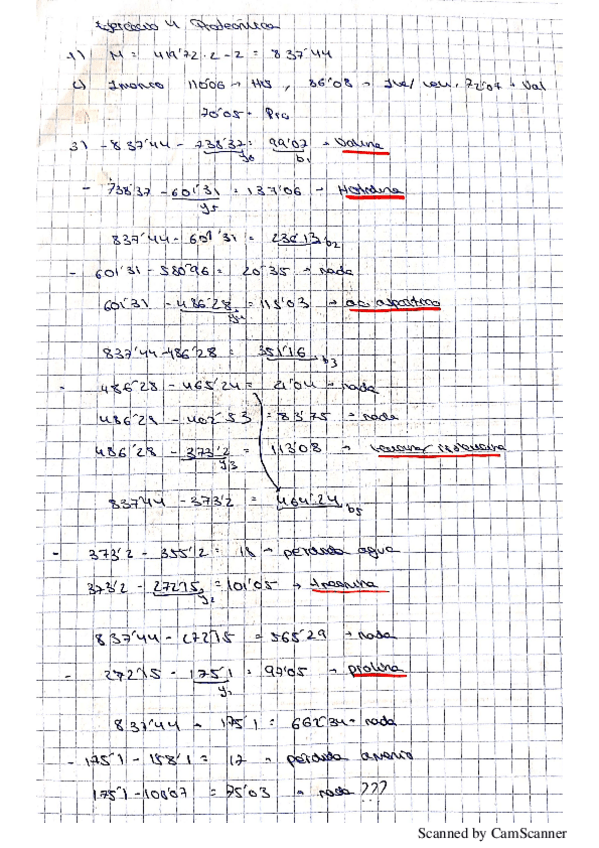 Ejercicio 4 Proteómica
1) M = 419'72 · 2 - 2 = 837'44
2) Inmonio 110'06 → His, 86'08 → Ile/Leu, 72'07 → Val
70'05 → Pro
3) - 837'44 - 738'37 = 99'07 → Valina
y6 b1
- 738'37 - 601'31 = 137'06 → Histidina
y5
837'44 - 601'31 = 236'13 b2
- 601'31 - 580'96 = 20'35 → nada
601'31 - 486'28 = 115'03 → ac aspártico
y4
837'44 - 486'28 = 351'16 b3
- 486'28 - 465'24 = 21'04 → nada
486'28 - 402'53 = 83'75 → nada
486'28 - 373'2 = 113'08 → Leucina/isoleucina
y3
837'44 - 373'2 = 464'24 b5
- 373'2 - 355'2 = 18 → perdida agua
373'2 - 272'15 = 101'05 → treonina
y2
837'44 - 272'15 = 565'29 → nada
- 272'15 - 175'1 = 97'05 → prolina
y1
837'44 - 175'1 = 662'34 → nada
- 175'1 - 158'1 = 17 → perdida amonio
= 75'03 → nada ???
Scanned by CamScanner